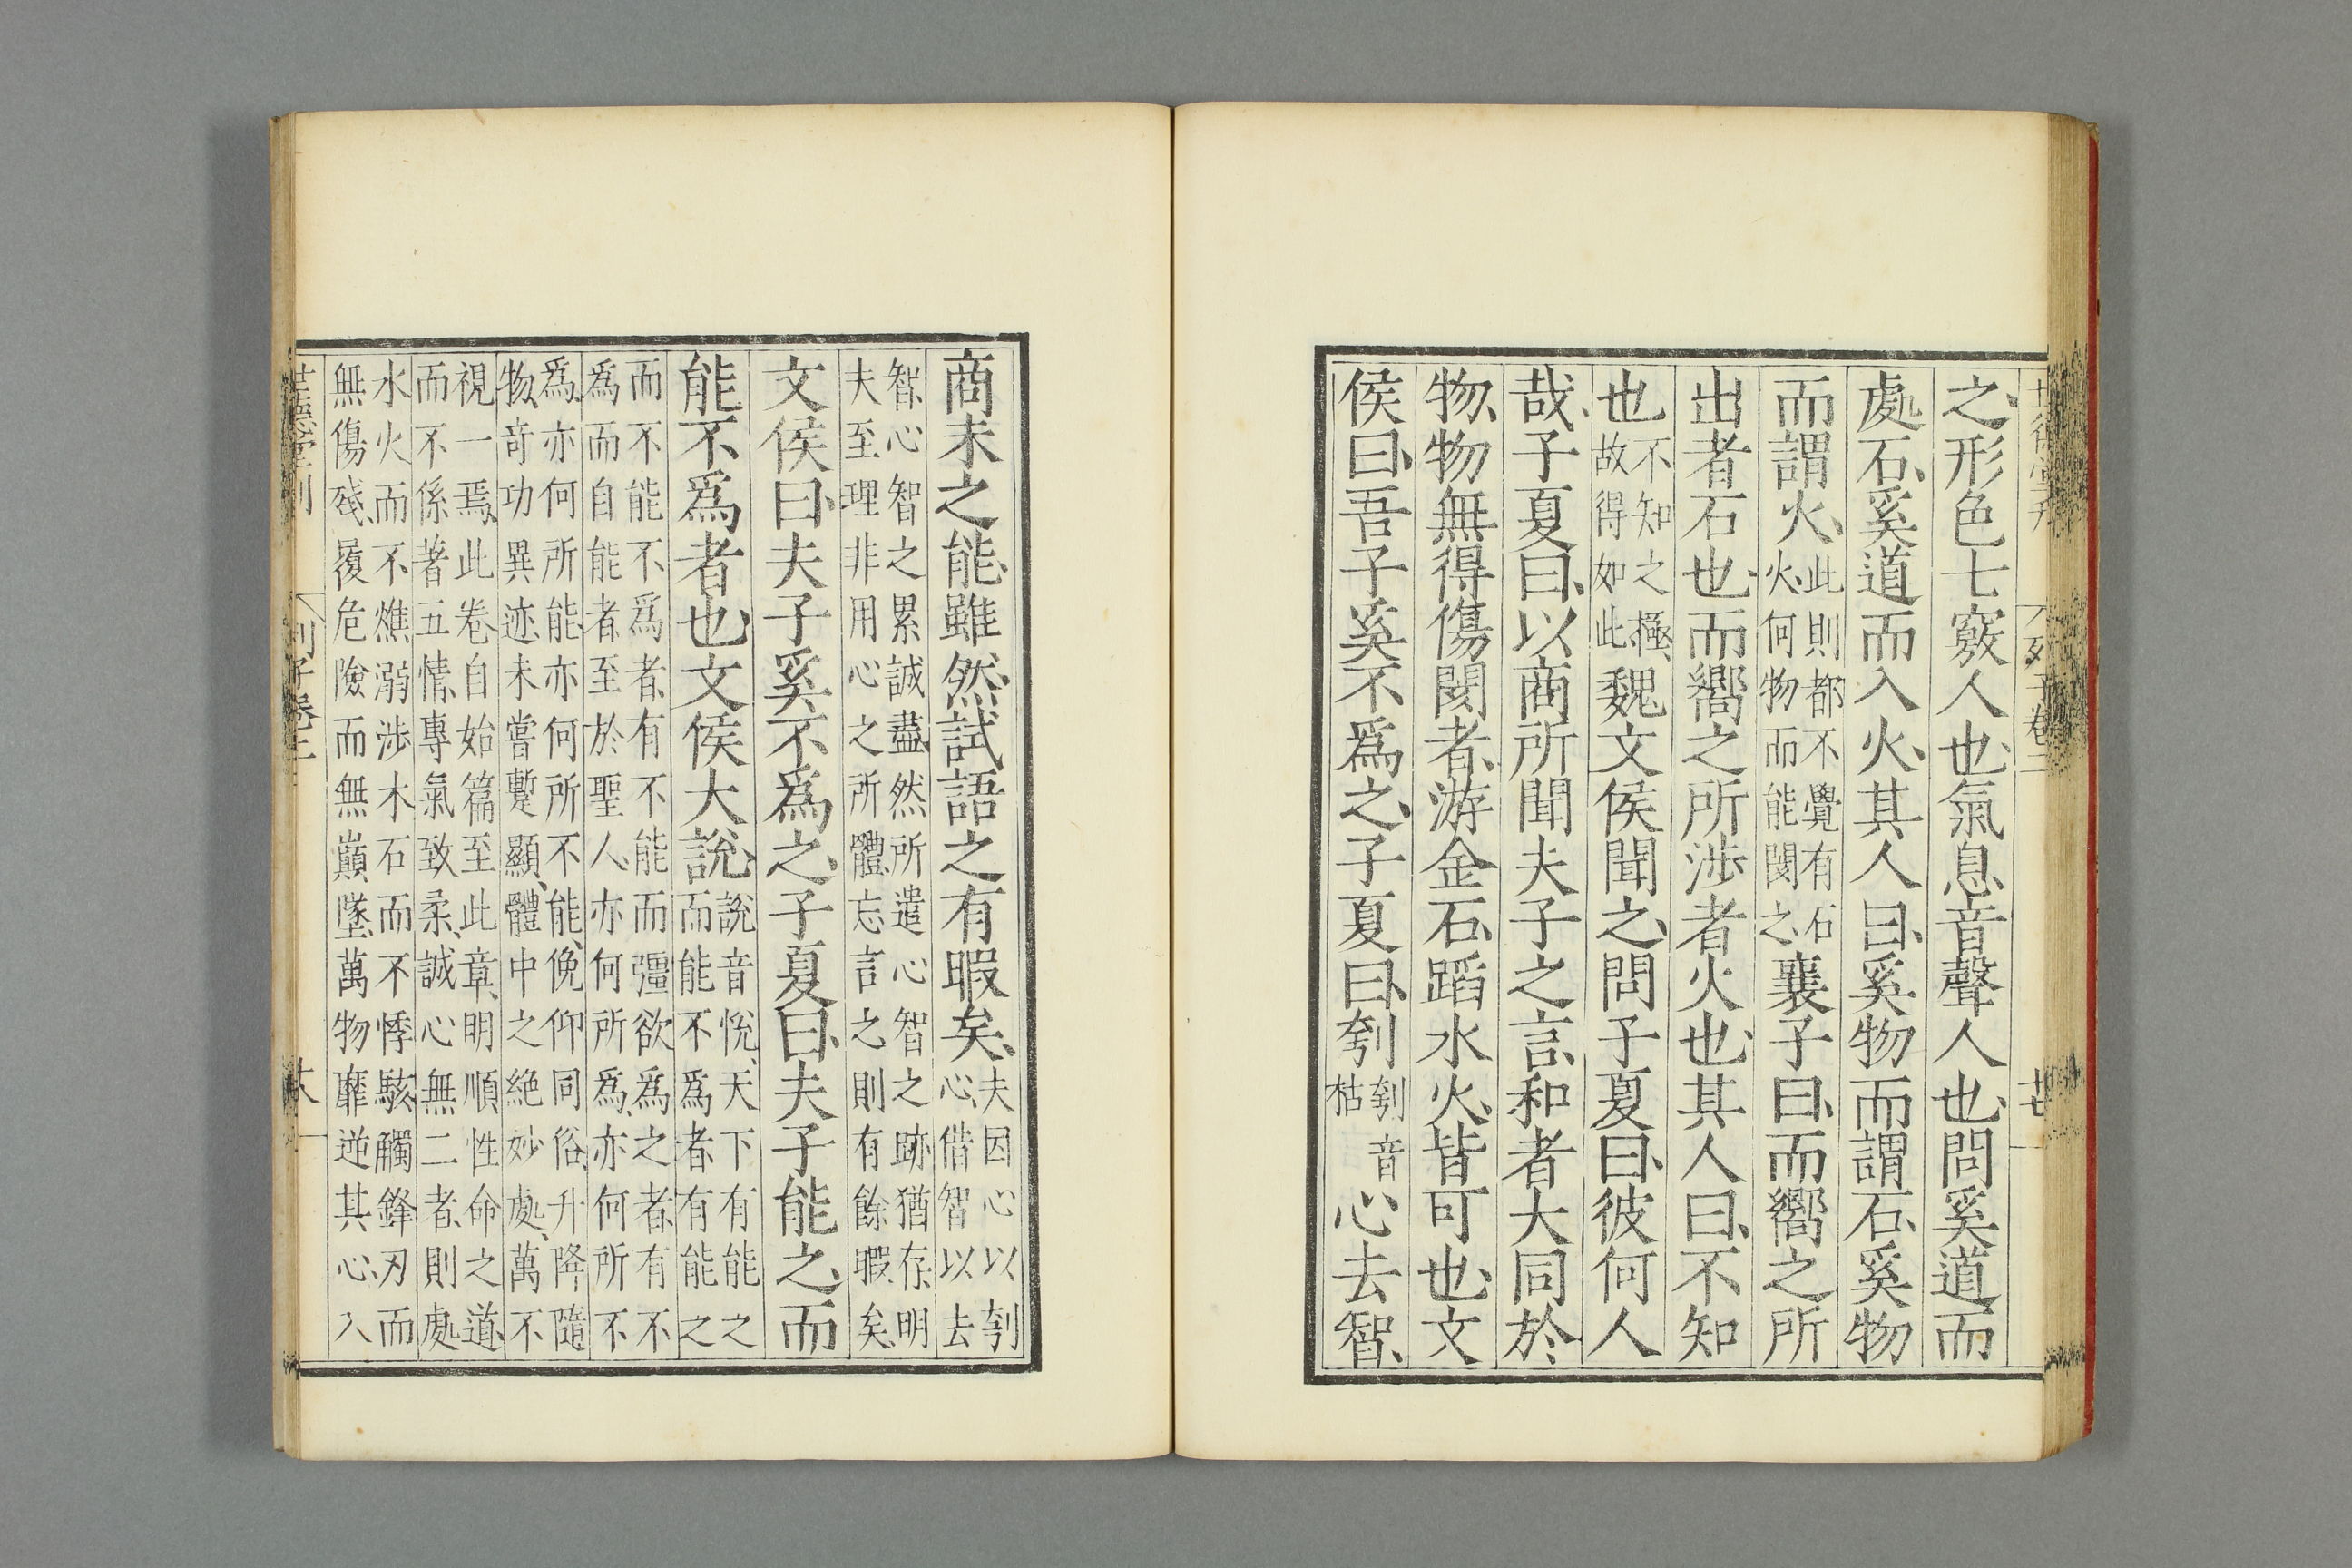 世德堂刊 列子卷二 廿七
之、形色七竅人也、氣息音聲人也、問奚道而
處石、奚道而入火、其人曰、奚物而謂石、奚物
而謂火、此則都不覺有石火、何物而能閡之、襄子曰、而嚮之所
出者石也、而嚮之所涉者火也、其人曰、不知
也不知之極、故得如此、魏文侯聞之、問子夏曰、彼何人
哉、子夏曰、以商所聞夫子之言、和者大同於
物、物無得傷閡者、游金石、蹈水火、皆可也、文
侯曰、吾子奚不爲之、子夏曰、刳刳音枯心去智、
商未之能、雖然、試語之有暇矣、夫因心以刳心、借智以去
智、心智之累誠盡、然所遣心智之跡猶存、明
夫至理非用心之所體、忘言之則有餘暇矣、
文侯曰、夫子奚不爲之、子夏曰、夫子能之、而
能不爲者也、文侯大說、說音悅、天下有能之而能不爲者、有能之
而不能不爲者、有不能而彊欲爲之者、有不
爲而自能者、至於聖人、亦何所爲、亦何所不
爲、亦何所能、亦何所不能、俛仰同俗、升降隨
物、奇功異迹、未嘗蹔顯、體中之絕妙處、萬不
視一焉、此卷自始篇至此章、明順性命之道、
而不係著五情、專氣致柔、誠心無二者、則處
水火而不燋溺、涉木石而不悸駭、觸鋒刃而
無傷殘、履危險而無巔墜、萬物靡逆其心、入
世德堂刊 列子卷二